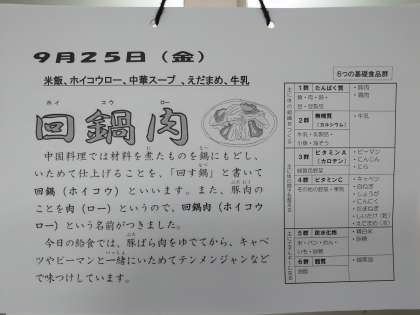 9月25日（金）
米飯、ホイコウロー、中華スープ、えだまめ、牛乳
ホイ コウ ロー
回鍋肉
中国料理では材料を煮たものを鍋にもどし、
いためて仕上げることを、「回す鍋」と書いて
回鍋（ホイコウ）といいます。また、豚肉の
ことを肉（ロー）というので、回鍋肉（ホイコウ
ロー）という名前がつきました。
今日の給食では、豚ばら肉をゆでてから、キャベ
ツやピーマンと一緒にいためてテンメンジャンなど
で味つけしています。
6つの基礎食品群
1群 たんぱく質
魚・肉・卵・
豆・豆製品
・豚肉
・鶏肉
2群 無機質
（カルシウム）
牛乳・乳製品・
小魚・海そう
・牛乳
3群 ビタミンA
（カロテン）
緑黄色野菜
・ピーマン
・にんじん
・にら
4群 ビタミンC
その他の野菜・果物
・キャベツ
・白ねぎ
・しょうが
・にんにく
・たまねぎ
・しいたけ（乾）
・えだまめ（冷）
5群 炭水化物
米・パン・めん・
いも・砂糖
・精白米
・砂糖
6群 脂質
油脂